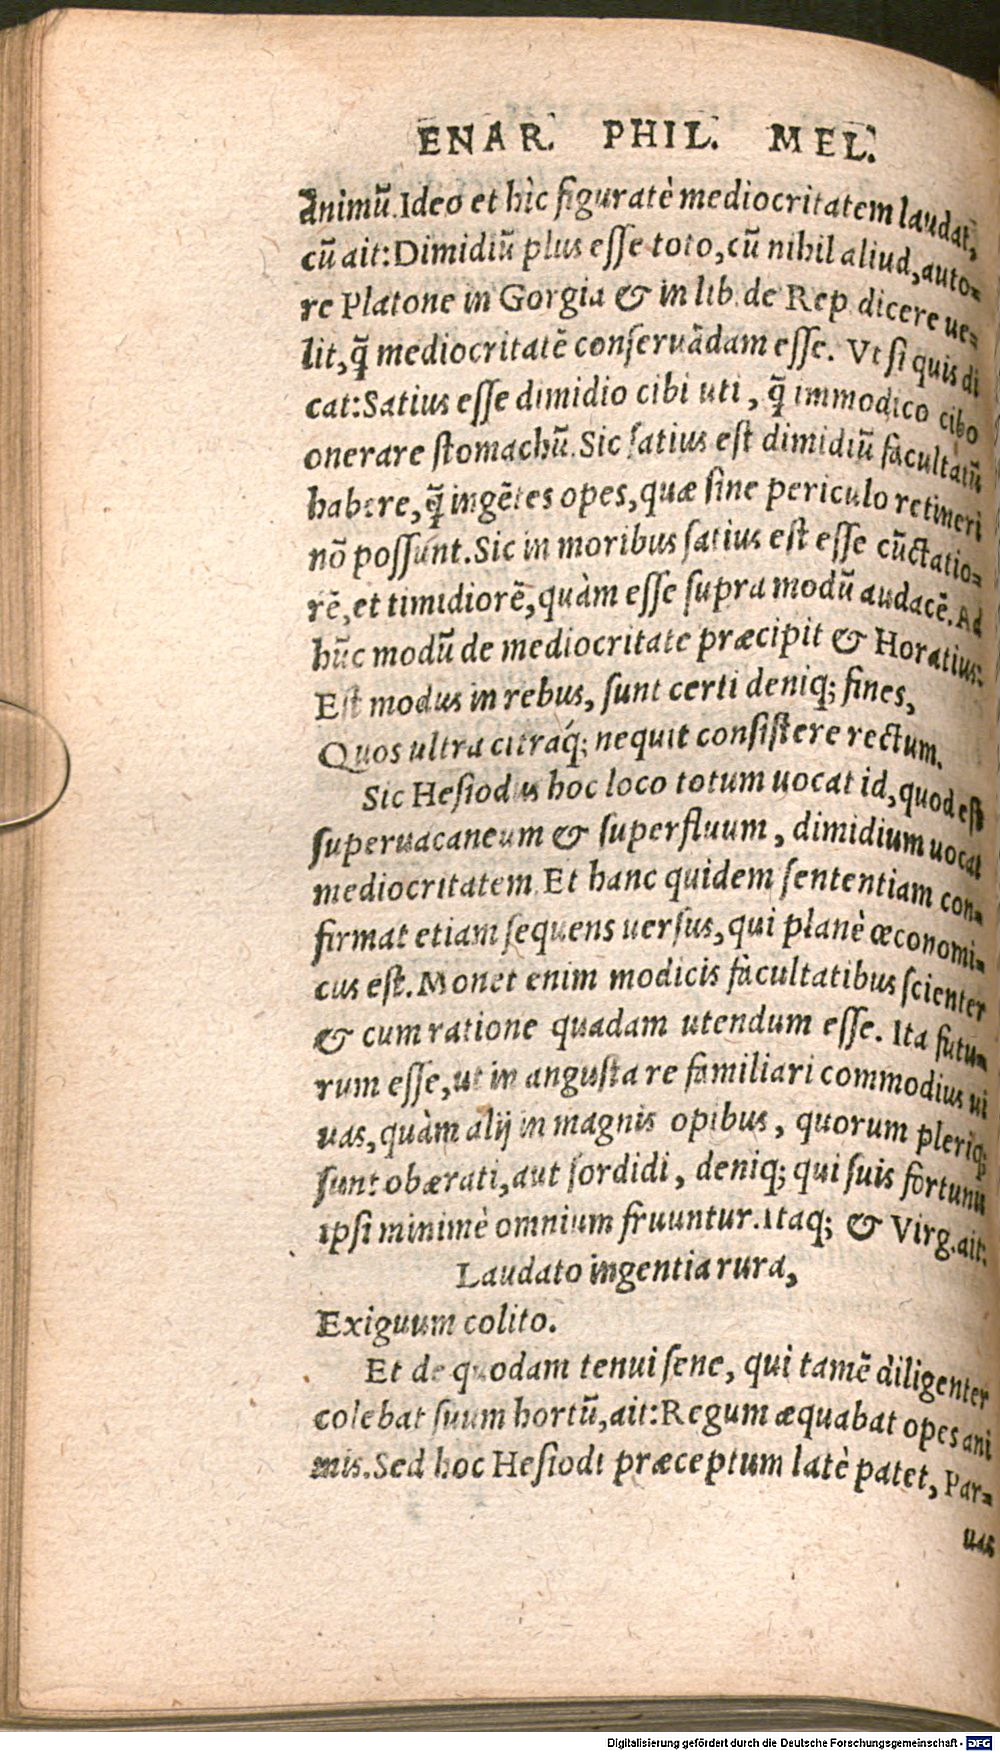 ENAR. PHIL. MEL.
animū. Ideo et hìc figuratè mediocritatem laudat,
cū ait: Dimidiū plus esse toto, cū nihil aliud, auto-
re Platone in Gorgia & in lib. de Rep. dicere ue-
lit, q̃ mediocritatē conseruãdam esse. Vt si quis di
cat: Satius esse dimidio cibi uti, q̃ immodico cibo
onerare stomachū. Sic satius est dimidiū facultatū
habere, q̃ ingētes opes, quæ sine periculo retineri
nō possunt. Sic in moribus satius est esse cūctatio-
rē, et timidiorē, quàm esse supra modū audacē. Ad
hūc modū de mediocritate præcipit & Horatius:
Est modus in rebus, sunt certi deniq; fines,
Quos ultra citraq́; nequit consistere rectum.
Sic Hesiodus hoc loco totum uocat id, quod est
superuacaneum & superfluum, dimidium uocat
mediocritatem. Et hanc quidem sententiam con-
firmat etiam sequens uersus, qui planè œconomi-
cus est. Monet enim modicis facultatibus scienter
& cum ratione quadam utendum esse. Ita futu-
rum esse, ut in angusta re familiari commodius ui
uas, quàm alij in magnis opibus, quorum pleriq;
sunt obærati, aut sordidi, deniq; qui suis fortunis
ipsi minimè omnium fruuntur. Itaq; & Virg. ait:
Laudato ingentia rura,
Exiguum colito.
Et de quodam tenui sene, qui tamē diligenter
colebat suum hortū, ait: Regum æquabat opes ani
mis. Sed hoc Hesiodi præceptum latè patet, Par-
uas
Digitalisierung gefördert durch die Deutsche Forschungsgemeinschaft - DFG